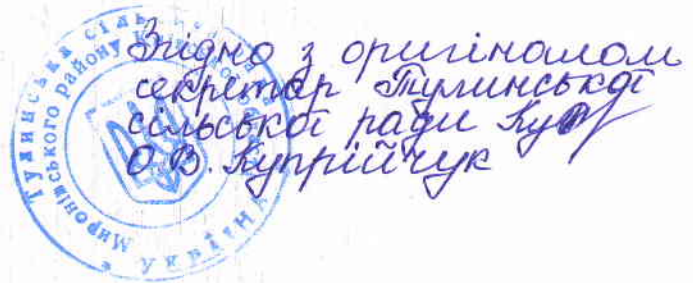 Згідно з оригіналом
секретар Тулинської
сільської ради
О.В. Купрійчук
Тулинська сільська
Миронівського району
УКРАЇНА